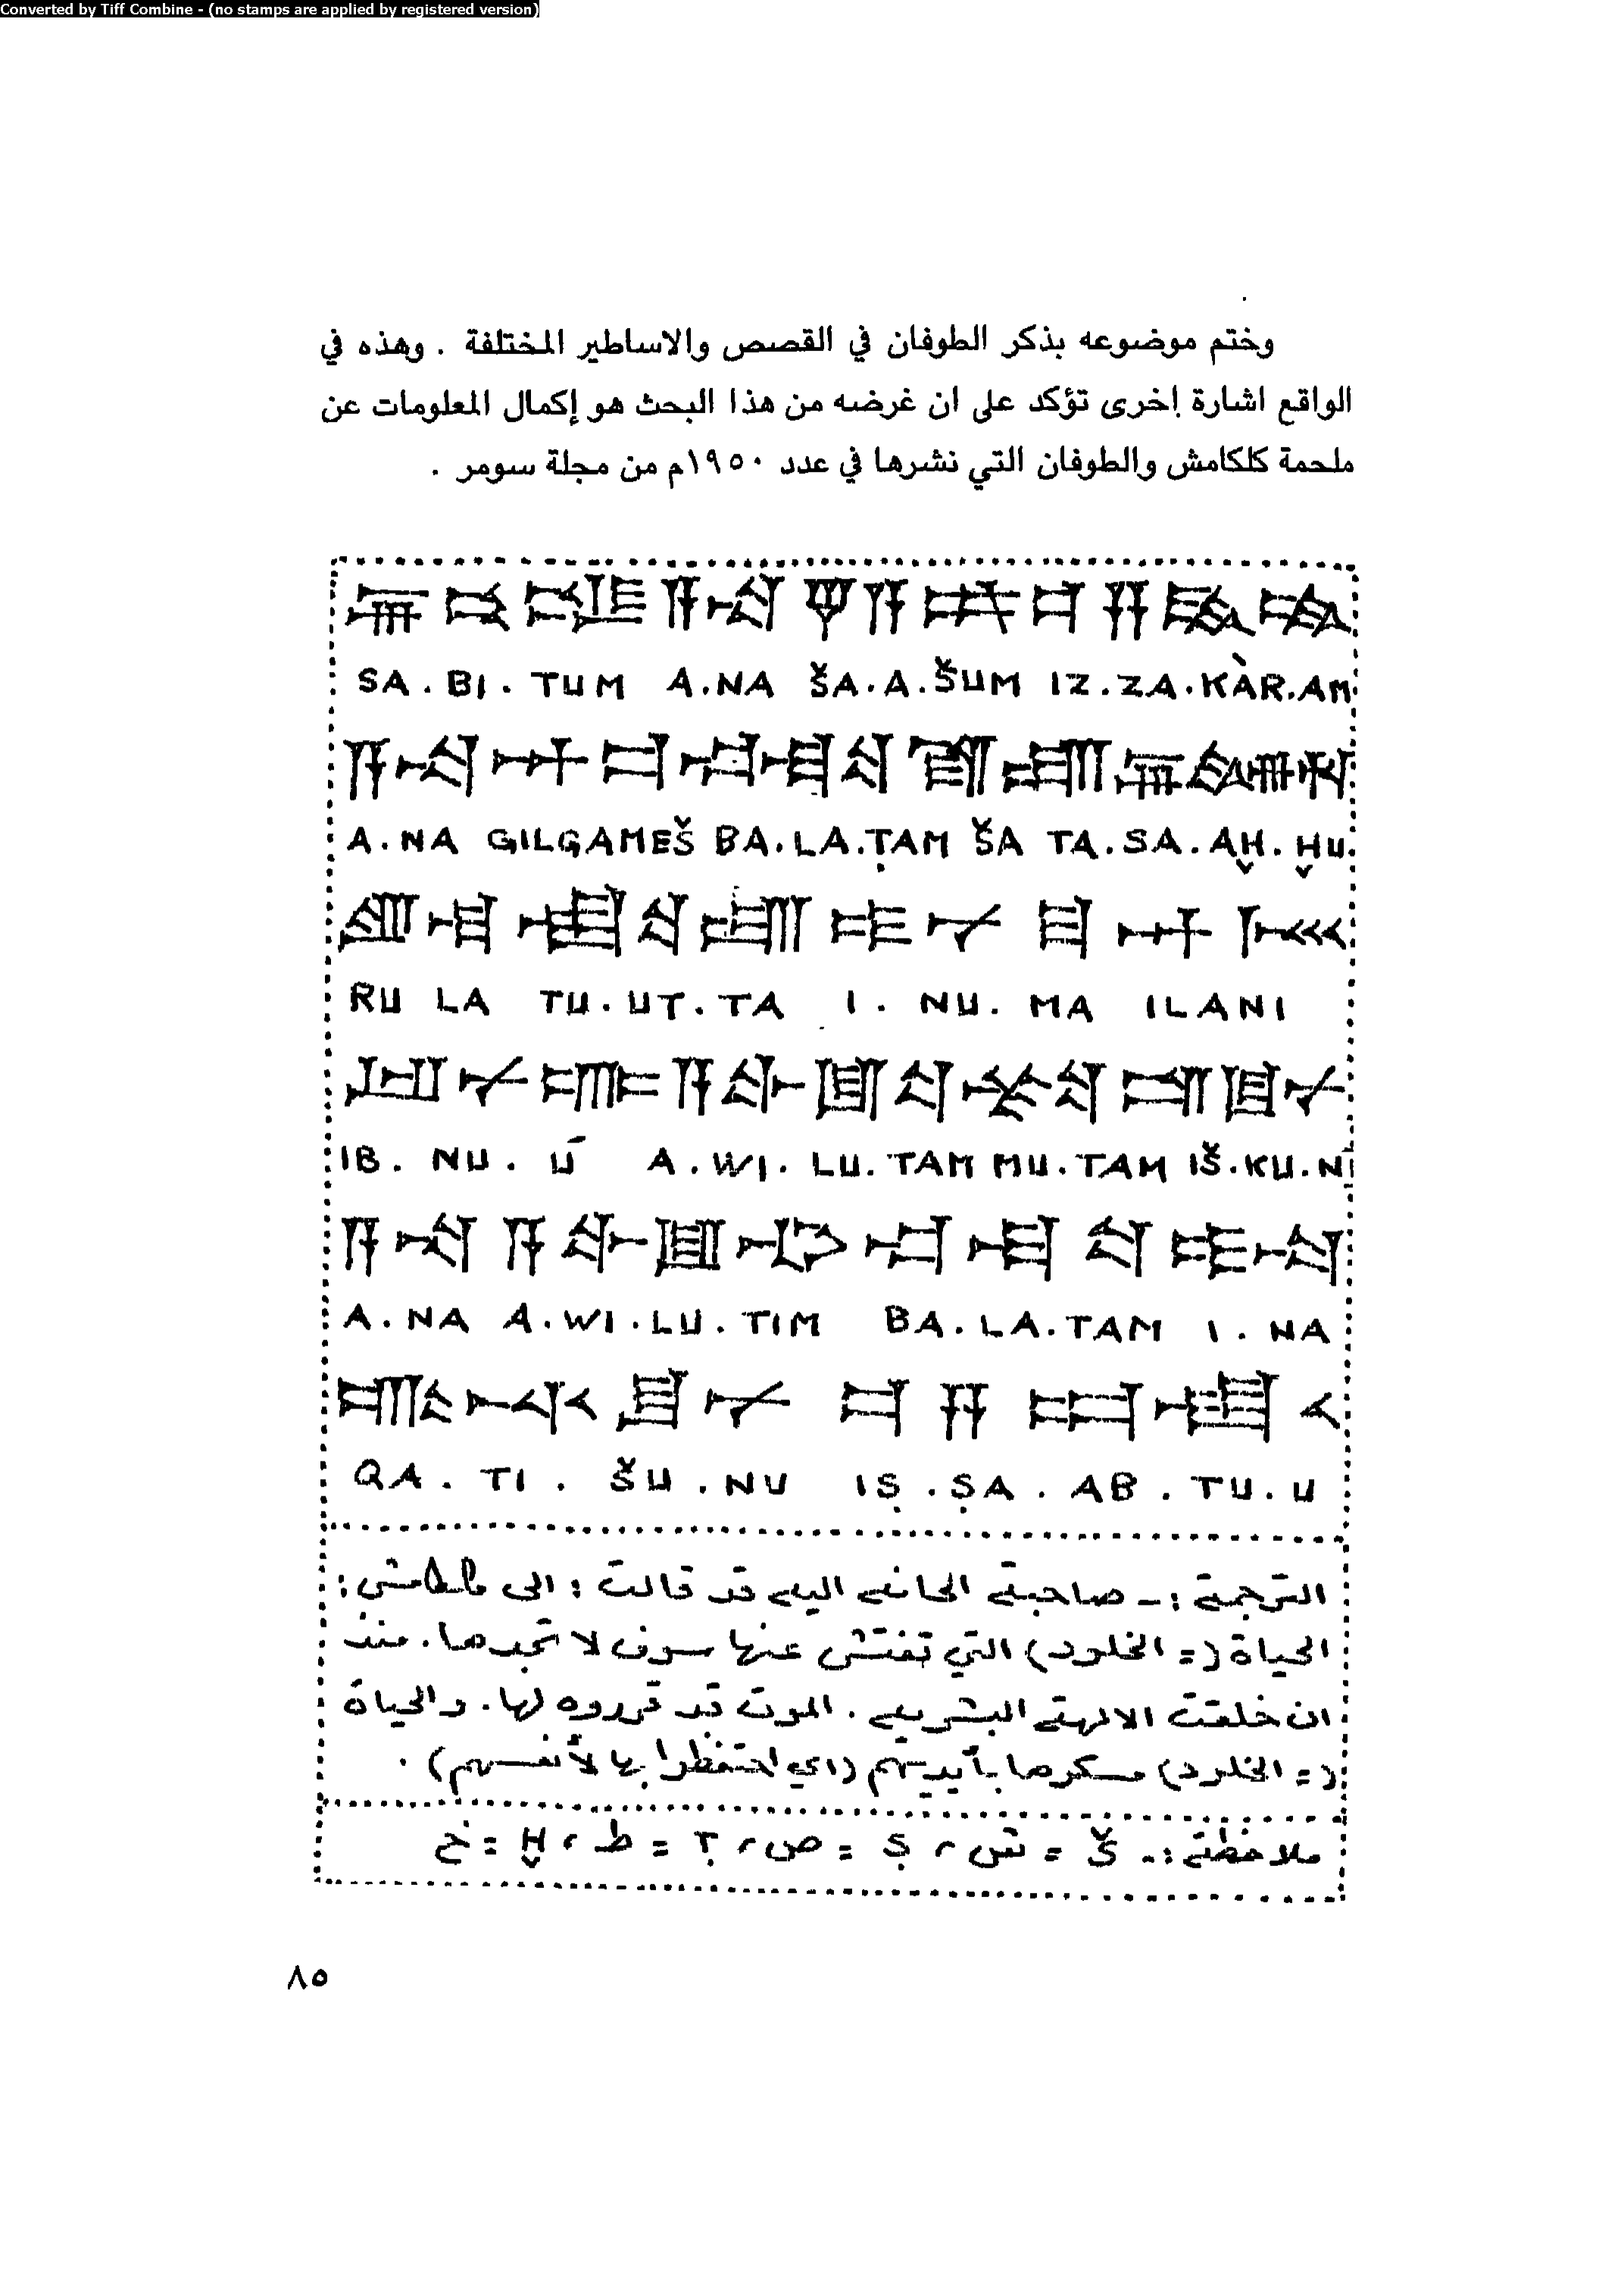 Converted by Tiff Combine - (no stamps are applied by registered version)
وختم موضوعه بذكر الطوفان في القصص والاساطير المختلفة . وهذه في
الواقع اشارة إخرى تؤكد على ان غرضه من هذا البحث هو إكمال المعلومات عن
ملحمة كلكامش والطوفان التي نشرها في عدد ١٩٥٠م من مجلة سومر .
SA . BI . TUM A.NA ŠA.A.ŠUM IZ.ZA.KÀR.AM
A.NA GILGAMEŠ BA.LA.ṬAM ŠA TA.SA.AḪ.ḪU.
RU LA TU.UT.TA I . NU. MA ILANI
IB. NU. Ū A.WI. LU.TAM MU.TAM IŠ.KU.NU
A.NA A.WI.LU.TIM BA.LA.TAM I . NA
QA . TI . ŠU . NU IṢ . ṢA . AB . TU. U
الترجمة :- صاحبة الحانة اليه قد قالت : الى كلكامش :
الحياة (= الخلود) التي تفتش عنها سوف لا تجدها. منذ
ان خلقت الالهة البشرية . الموت قد قرروه لها. والحياة
(= الخلود) مسكوها بأيديهم (اي احتفظوا بها لأنفسهم) .
ملاحظة :- Š = ش ، Ṣ = ص ، Ṭ = ط ، Ḫ = خ
٨٥